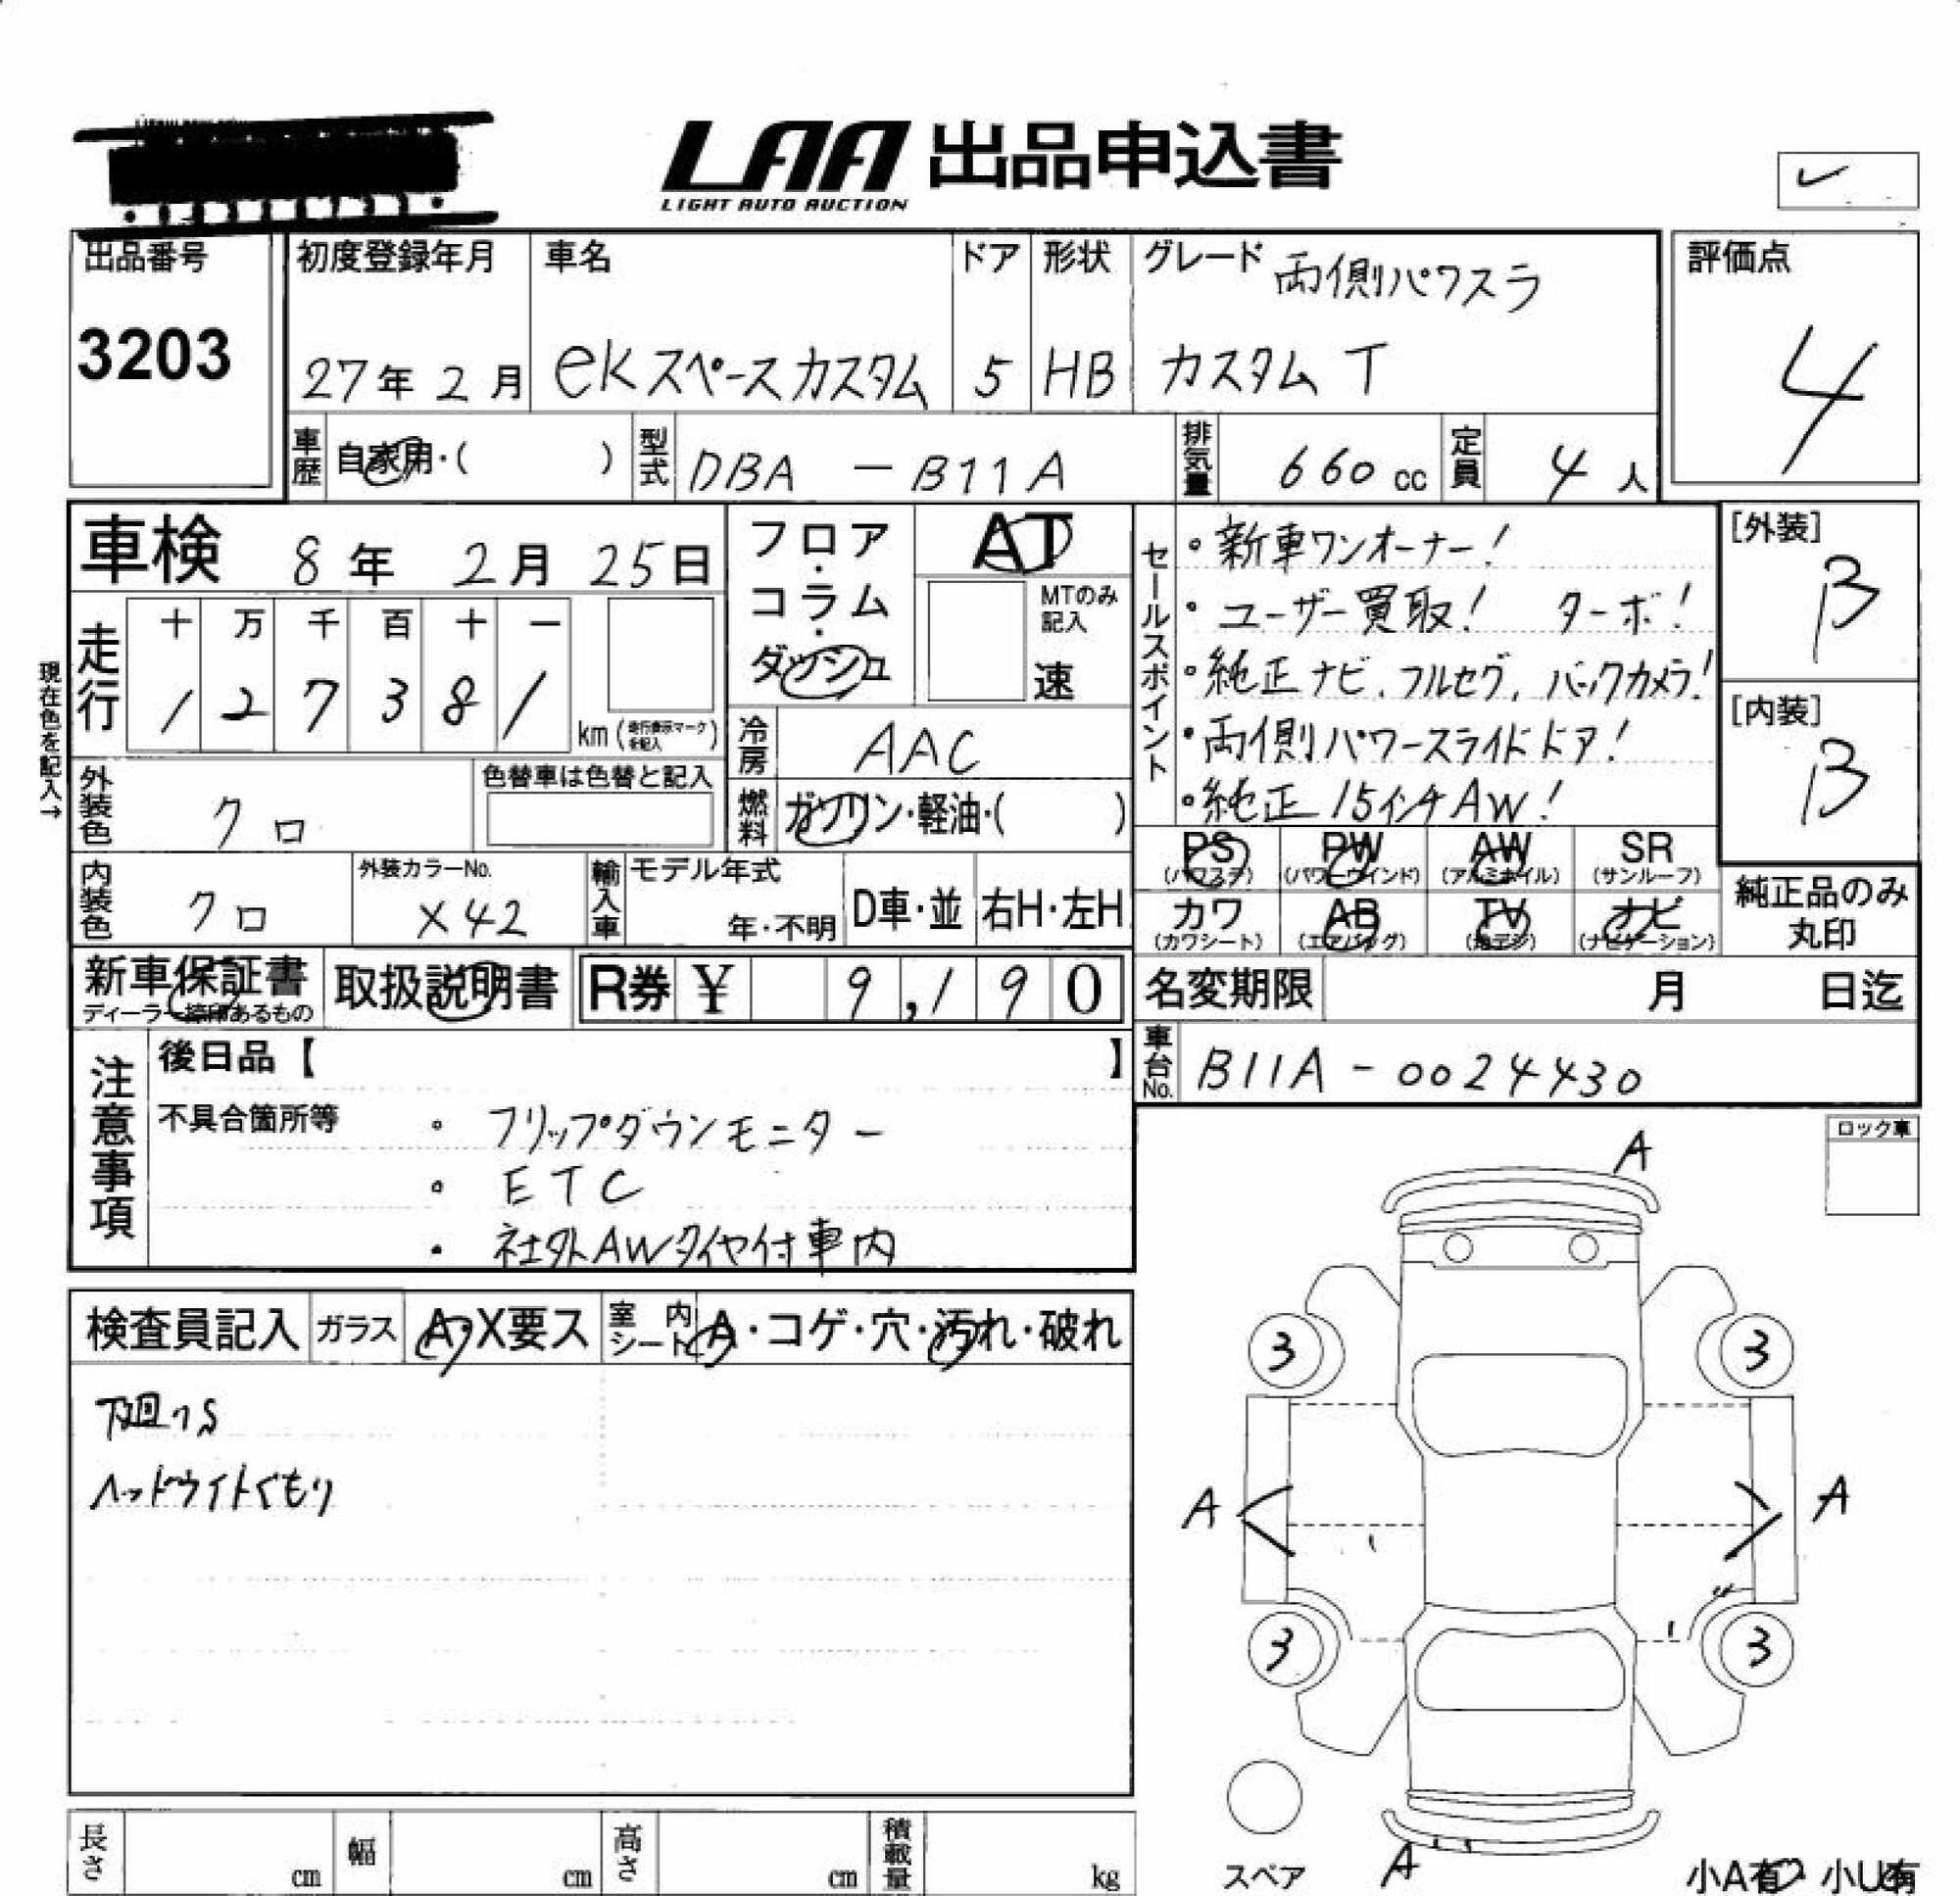 LAA 出品申込書
LIGHT AUTO AUCTION
出品番号
3203
初度登録年月
27年 2月
車名
eKスペースカスタム
ドア
5
形状
HB
グレード 両側パワスラ
カスタム T
評価点
4
車歴 自家用・( )
型式 DBA - B11A
排気量 660 cc
定員 4 人
車検 8年 2月 25日
フロア・コラム・ダッシュ
AT
MTのみ記入
速
走行
十 万 千 百 十 一
1 2 7 3 8 1
km (走行表示マークを記入)
現在色を記入→
冷房 AAC
外装色 クロ
色替車は色替と記入
燃料 ガソリン・軽油・( )
内装色 クロ
外装カラーNo.
X42
輸入車
モデル年式
年・不明
D車・並
右H・左H
セールスポイント
・新車ワンオーナー!
・ユーザー買取! ターボ!
・純正ナビ、フルセグ、バックカメラ!
・両側パワースライドドア!
・純正15インチAW!
[外装]
B
[内装]
B
PS (パワステ) PW (パワーウインド) AW (アルミホイル) SR (サンルーフ)
カワ (カワシート) AB (エアバッグ) TV (地デジ) ナビ (ナビゲーション)
純正品のみ
丸印
新車保証書
ディーラー捺印あるもの
取扱説明書
R券 ¥ 9,190
名変期限 月 日迄
車台No. B11A - 0024430
注意事項
後日品【 】
不具合箇所等
・フリップダウンモニター
・ETC
・社外AWタイヤ付車内
ロック車
検査員記入
ガラス A・X要ス
室内シート A・コゲ・穴・汚れ・破れ
下廻りS
ヘッドライトくもり
A
3 3
A A
3 3
A
スペア
小A有・小U有
長さ cm
幅 cm
高さ cm
積載量 kg